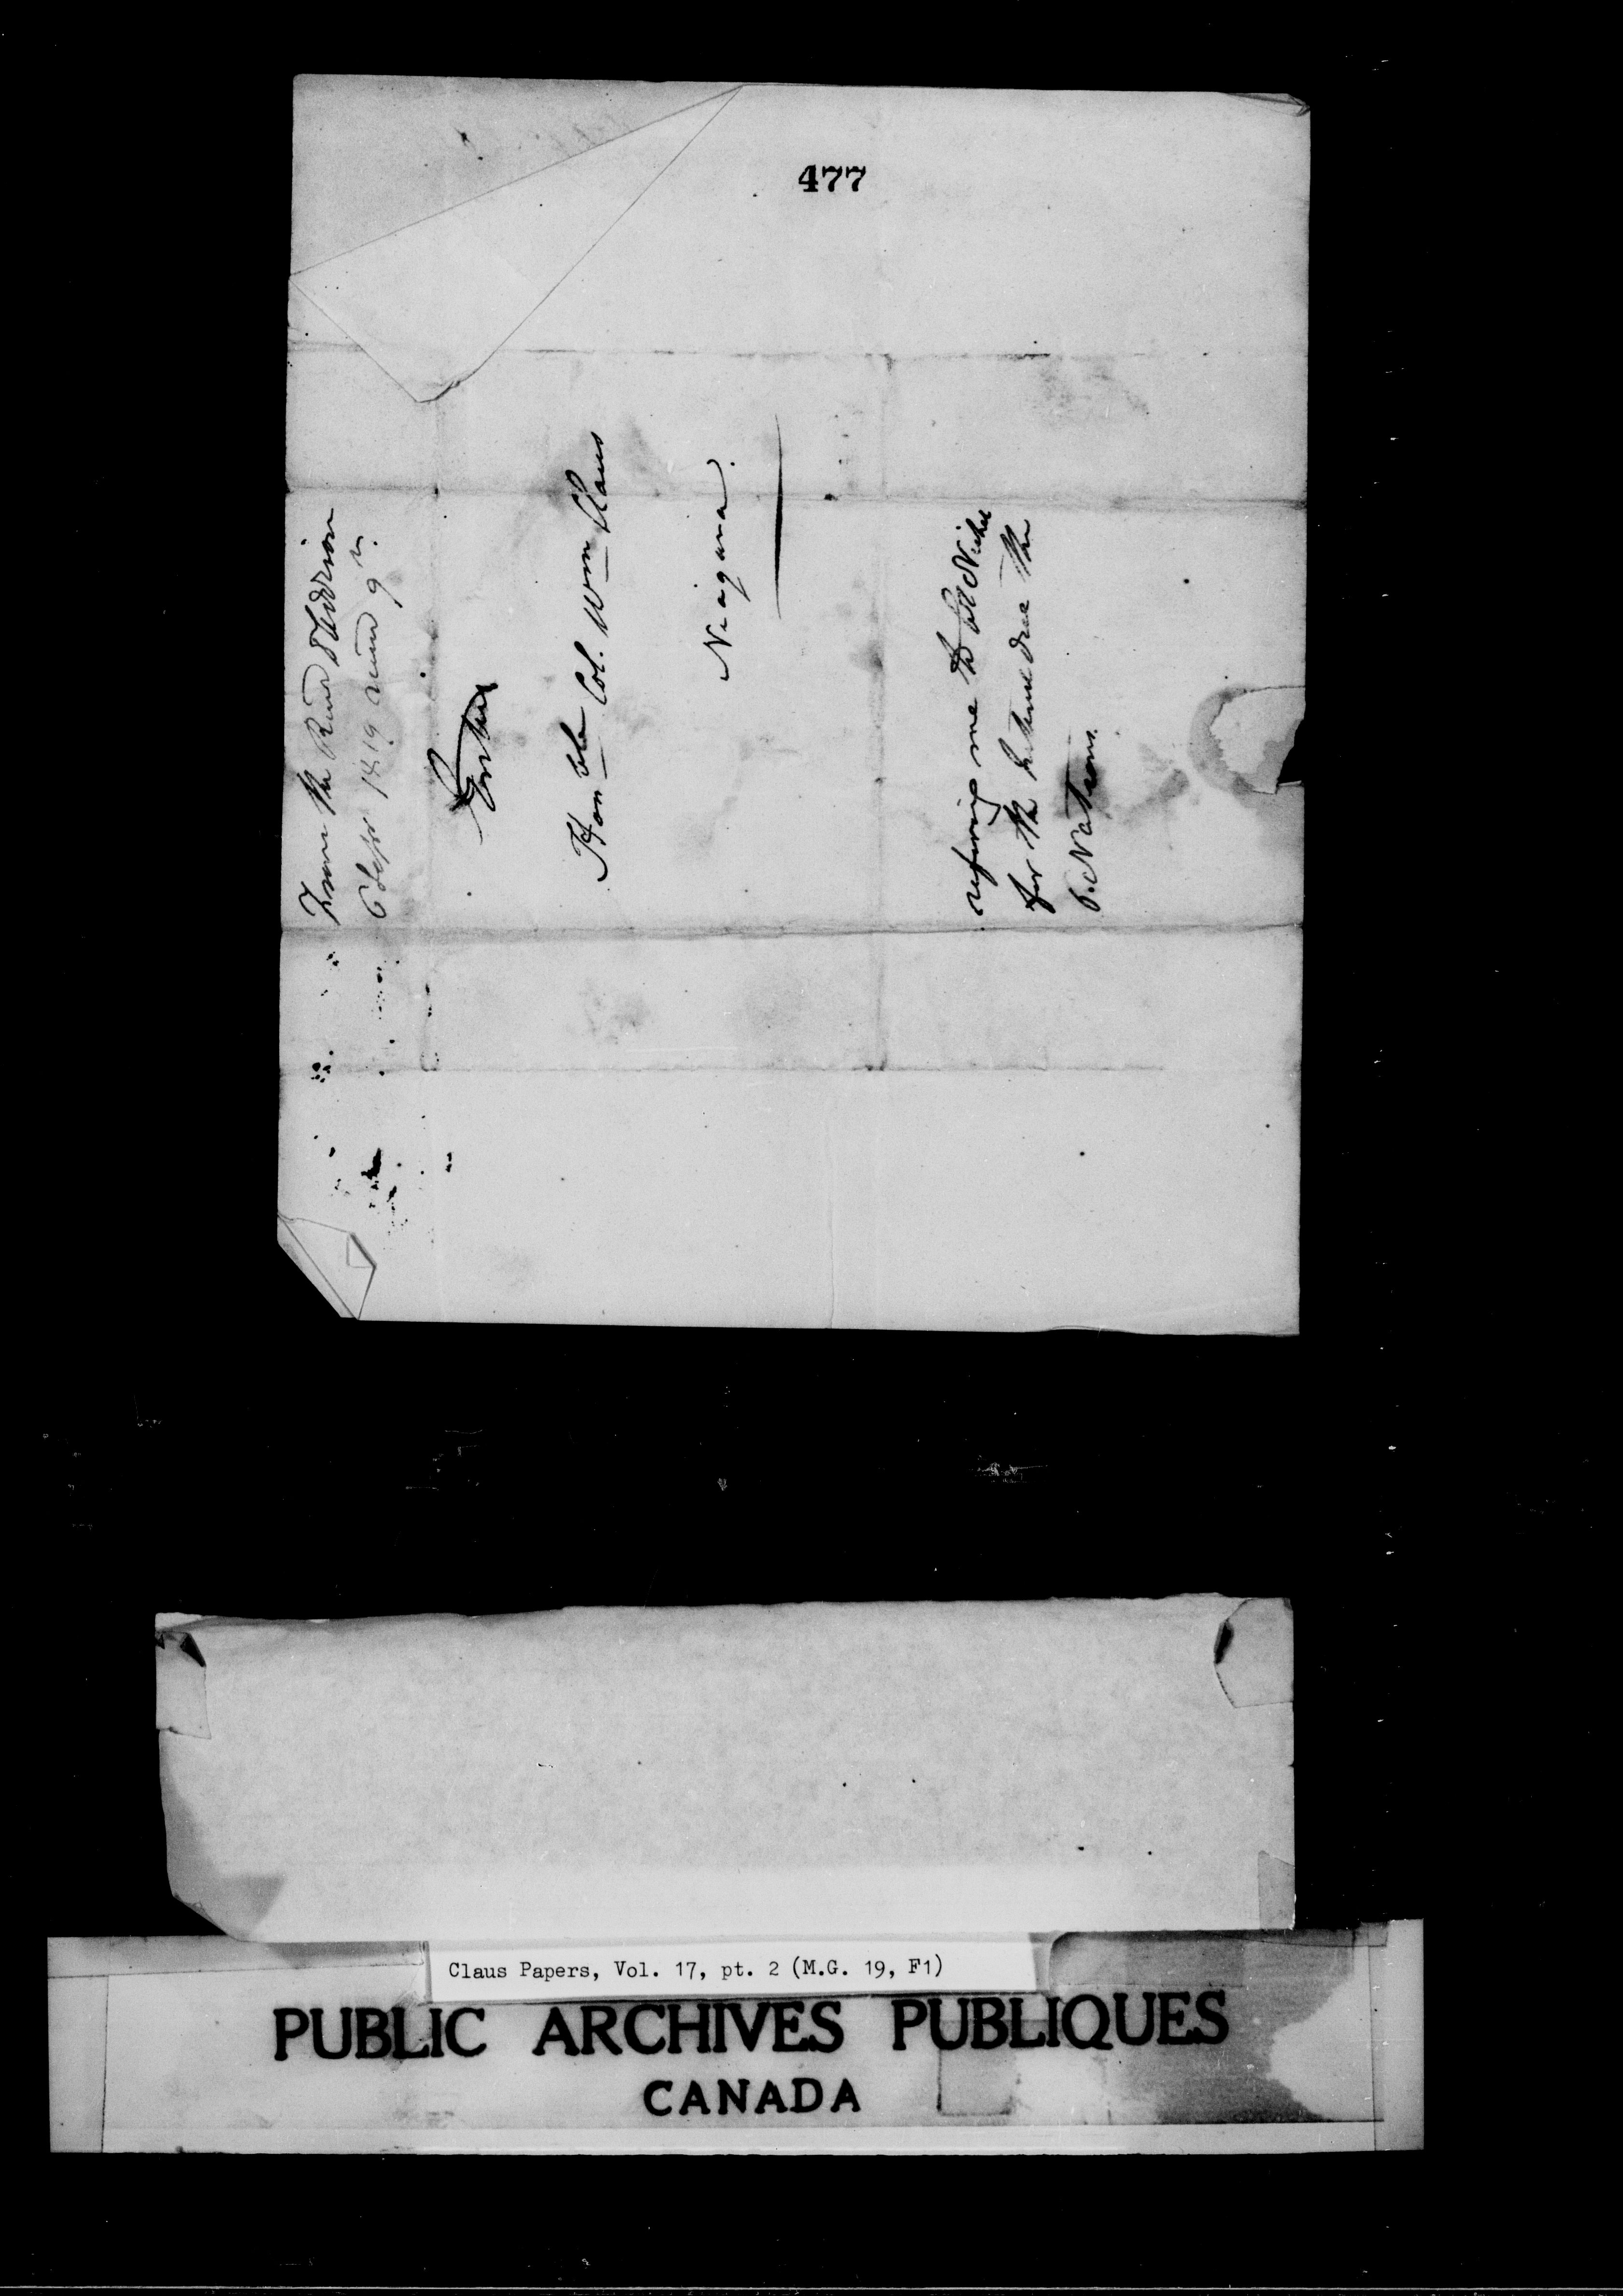 477
From the Revd
1819 recd 9th
Honble Col. Wm Claus
Niagara.
refering me to
for the Interest due the
6. Nations.
Claus Papers, Vol. 17, pt. 2 (M.G. 19, F1)
PUBLIC ARCHIVES PUBLIQUES
CANADA